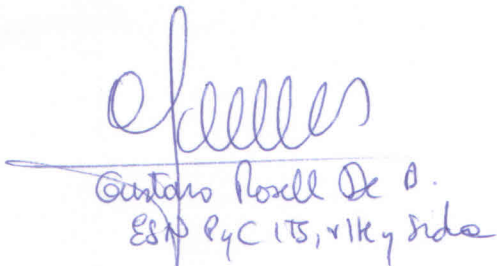 Gustavo Rosell De A.
ESN PyC ITS, VIH y Sida